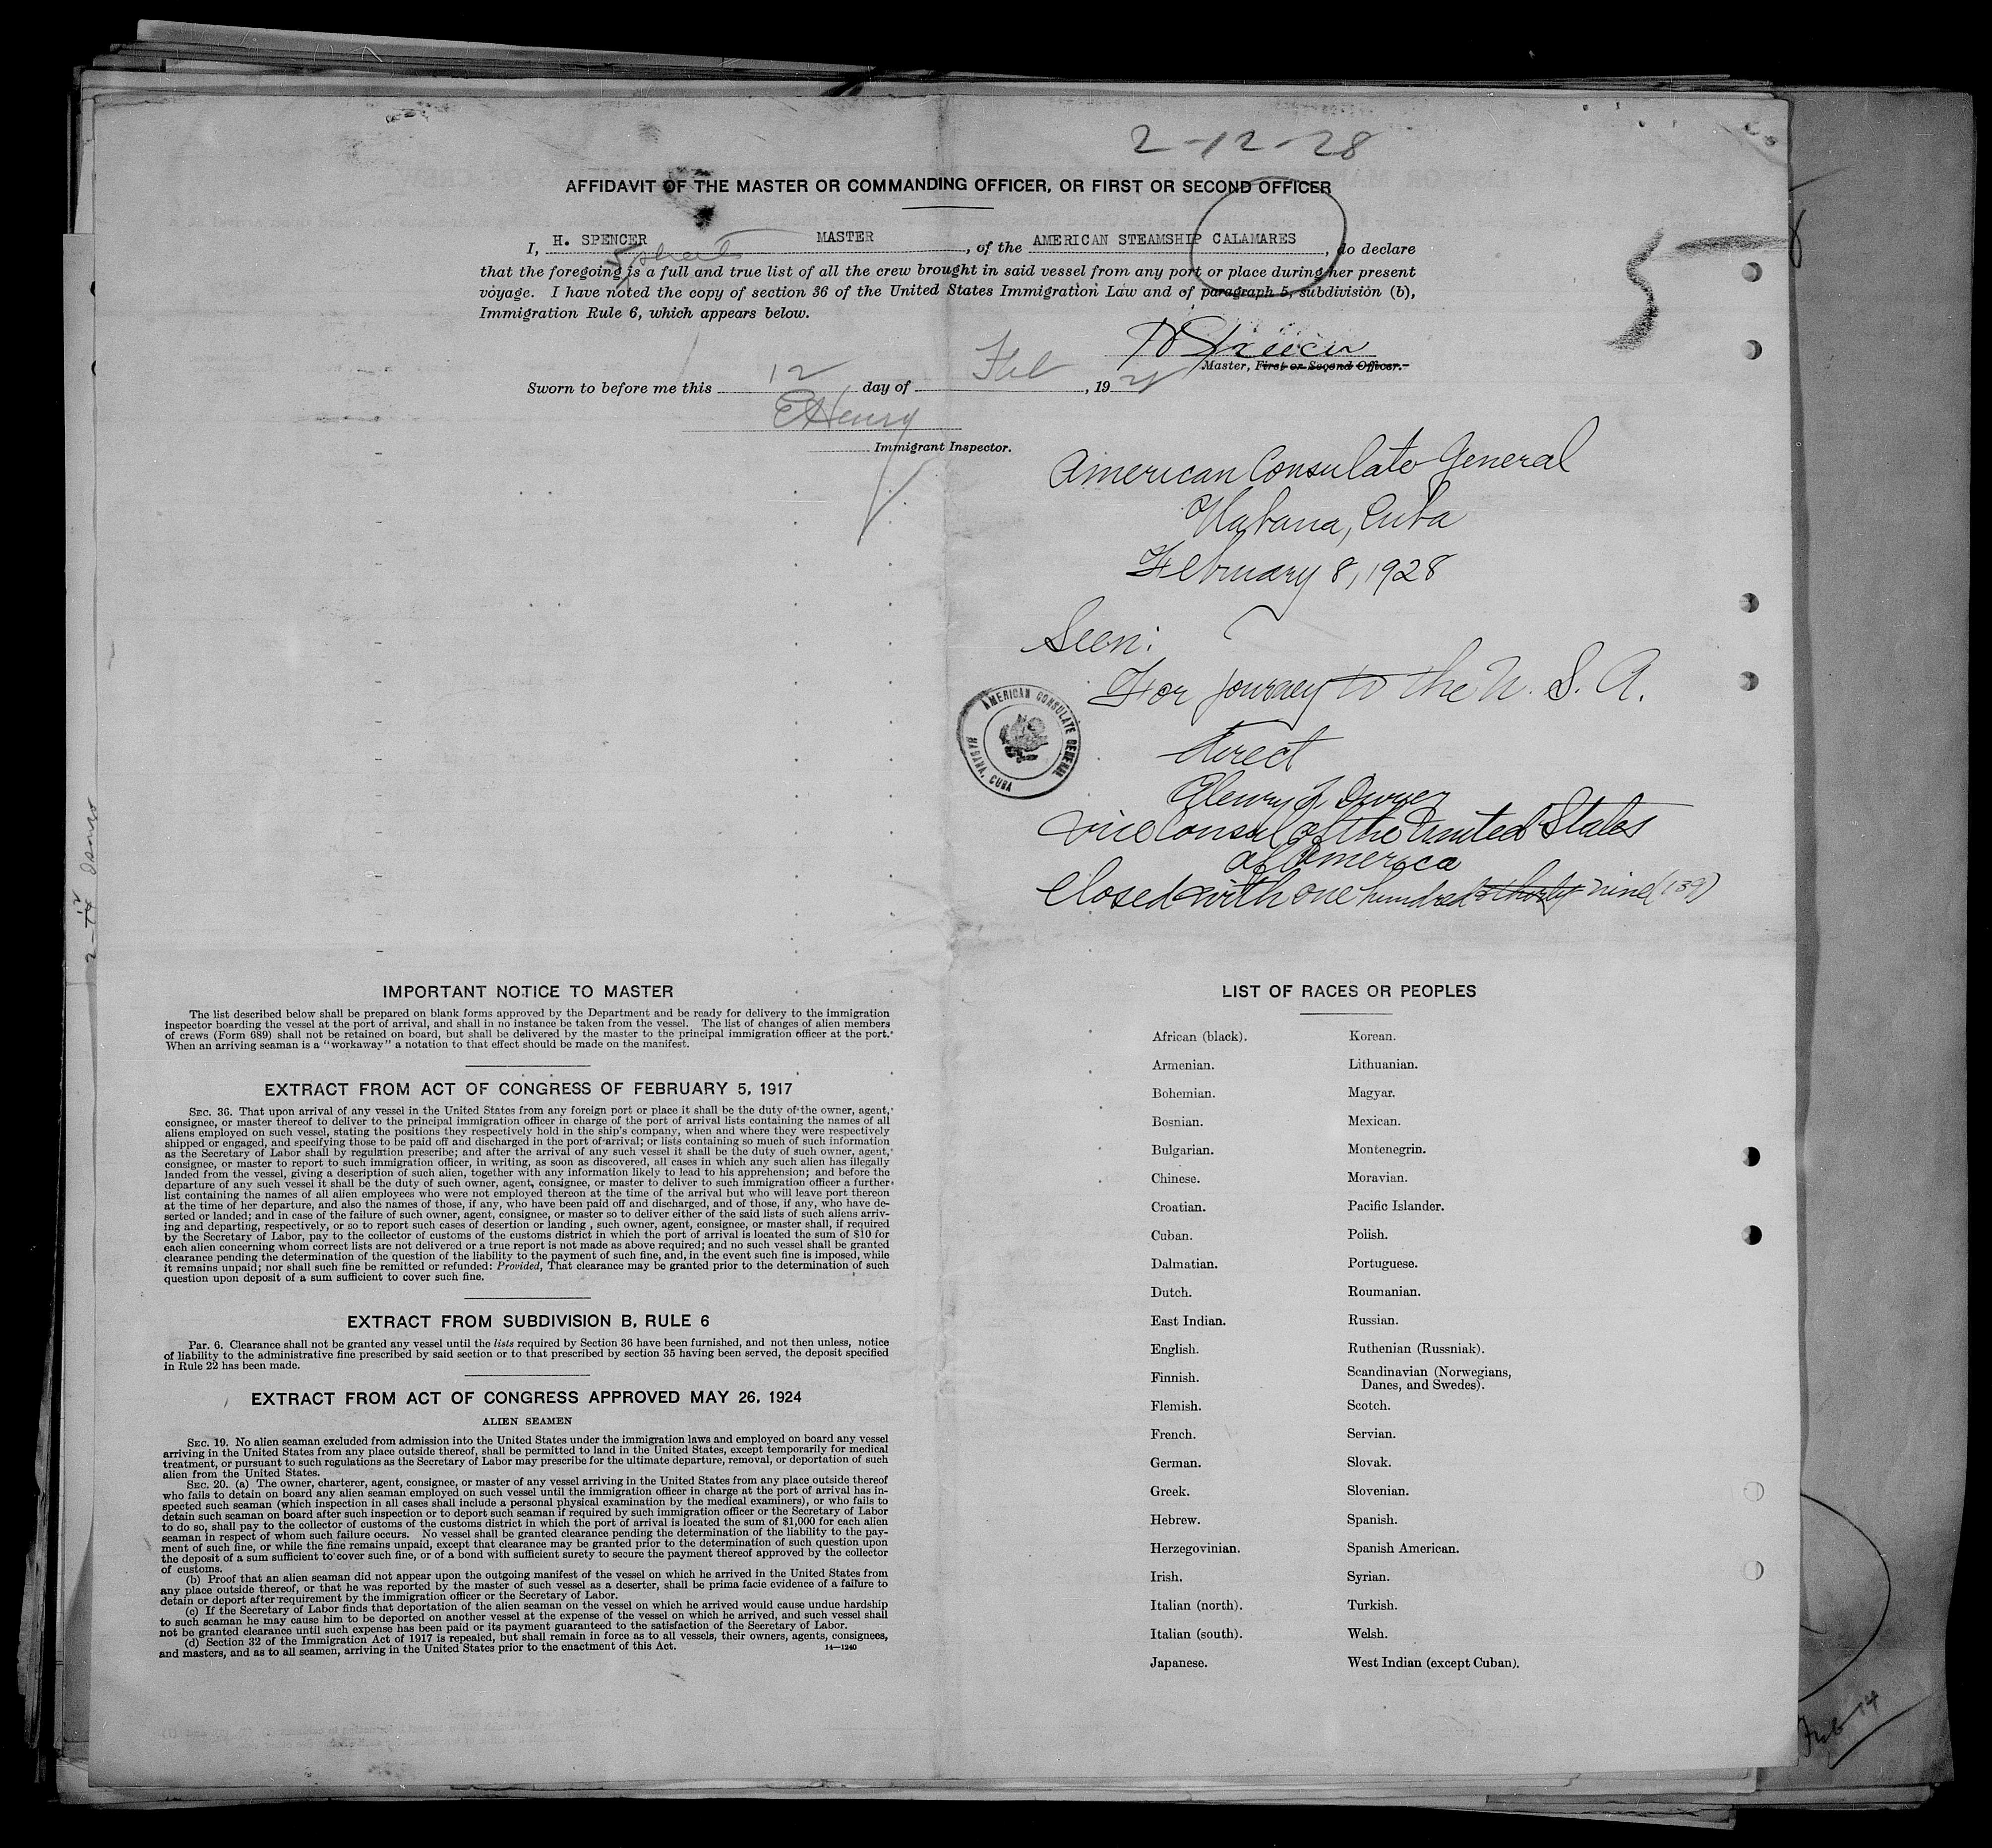 2-12-28
AFFIDAVIT OF THE MASTER OR COMMANDING OFFICER, OR FIRST OR SECOND OFFICER
I, H. SPENCER MASTER, of the AMERICAN STEAMSHIP CALAMARES, do declare
5 sheets
that the foregoing is a full and true list of all the crew brought in said vessel from any port or place during her present
voyage. I have noted the copy of section 36 of the United States Immigration Law and of paragraph 5, subdivision (b),
Immigration Rule 6, which appears below.
5
H Spencer
Master, First or Second Officer.
Sworn to before me this 12 day of Feb, 192
E Henry
Immigrant Inspector.
American Consulate General
Habana, Cuba
February 8, 1928
Seen:
For journey to the U. S. A.
direct
AMERICAN CONSULATE GENERAL
HABANA, CUBA
Henry J. Dwyer
Vice Consul of the United States
of America
Closed with one hundred & thirty nine (139)
IMPORTANT NOTICE TO MASTER
The list described below shall be prepared on blank forms approved by the Department and be ready for delivery to the immigration
inspector boarding the vessel at the port of arrival, and shall in no instance be taken from the vessel. The list of changes of alien members
of crews (Form 689) shall not be retained on board, but shall be delivered by the master to the principal immigration officer at the port.
When an arriving seaman is a "workaway" a notation to that effect should be made on the manifest.
EXTRACT FROM ACT OF CONGRESS OF FEBRUARY 5, 1917
SEC. 36. That upon arrival of any vessel in the United States from any foreign port or place it shall be the duty of the owner, agent,
consignee, or master thereof to deliver to the principal immigration officer in charge of the port of arrival lists containing the names of all
aliens employed on such vessel, stating the positions they respectively hold in the ship's company, when and where they were respectively
shipped or engaged, and specifying those to be paid off and discharged in the port of arrival; or lists containing so much of such information
as the Secretary of Labor shall by regulation prescribe; and after the arrival of any such vessel it shall be the duty of such owner, agent,
consignee, or master to report to such immigration officer, in writing, as soon as discovered, all cases in which any such alien has illegally
landed from the vessel, giving a description of such alien, together with any information likely to lead to his apprehension; and before the
departure of any such vessel it shall be the duty of such owner, agent, consignee, or master to deliver to such immigration officer a further
list containing the names of all alien employees who were not employed thereon at the time of the arrival but who will leave port thereon
at the time of her departure, and also the names of those, if any, who have been paid off and discharged, and of those, if any, who have de-
serted or landed; and in case of the failure of such owner, agent, consignee, or master so to deliver either of the said lists of such aliens arriv-
ing and departing, respectively, or so to report such cases of desertion or landing, such owner, agent, consignee, or master shall, if required
by the Secretary of Labor, pay to the collector of customs of the customs district in which the port of arrival is located the sum of $10 for
each alien concerning whom correct lists are not delivered or a true report is not made as above required; and no such vessel shall be granted
clearance pending the determination of the question of the liability to the payment of such fine, and, in the event such fine is imposed, while
it remains unpaid; nor shall such fine be remitted or refunded: Provided, That clearance may be granted prior to the determination of such
question upon deposit of a sum sufficient to cover such fine.
EXTRACT FROM SUBDIVISION B, RULE 6
Par. 6. Clearance shall not be granted any vessel until the lists required by Section 36 have been furnished, and not then unless, notice
of liability to the administrative fine prescribed by said section or to that prescribed by section 35 having been served, the deposit specified
in Rule 22 has been made.
EXTRACT FROM ACT OF CONGRESS APPROVED MAY 26, 1924
ALIEN SEAMEN
SEC. 19. No alien seaman excluded from admission into the United States under the immigration laws and employed on board any vessel
arriving in the United States from any place outside thereof, shall be permitted to land in the United States, except temporarily for medical
treatment, or pursuant to such regulations as the Secretary of Labor may prescribe for the ultimate departure, removal, or deportation of such
alien from the United States.
SEC. 20. (a) The owner, charterer, agent, consignee, or master of any vessel arriving in the United States from any place outside thereof
who fails to detain on board any alien seaman employed on such vessel until the immigration officer in charge at the port of arrival has in-
spected such seaman (which inspection in all cases shall include a personal physical examination by the medical examiners), or who fails to
detain such seaman on board after such inspection or to deport such seaman if required by such immigration officer or the Secretary of Labor
to do so, shall pay to the collector of customs of the customs district in which the port of arrival is located the sum of $1,000 for each alien
seaman in respect of whom such failure occurs. No vessel shall be granted clearance pending the determination of the liability to the pay-
ment of such fine, or while the fine remains unpaid, except that clearance may be granted prior to the determination of such question upon
the deposit of a sum sufficient to cover such fine, or of a bond with sufficient surety to secure the payment thereof approved by the collector
of customs.
(b) Proof that an alien seaman did not appear upon the outgoing manifest of the vessel on which he arrived in the United States from
any place outside thereof, or that he was reported by the master of such vessel as a deserter, shall be prima facie evidence of a failure to
detain or deport after requirement by the immigration officer or the Secretary of Labor.
(c) If the Secretary of Labor finds that deportation of the alien seaman on the vessel on which he arrived would cause undue hardship
to such seaman he may cause him to be deported on another vessel at the expense of the vessel on which he arrived, and such vessel shall
not be granted clearance until such expense has been paid or its payment guaranteed to the satisfaction of the Secretary of Labor.
(d) Section 32 of the Immigration Act of 1917 is repealed, but shall remain in force as to all vessels, their owners, agents, consignees,
and masters, and as to all seamen, arriving in the United States prior to the enactment of this Act.
14—1240
LIST OF RACES OR PEOPLES
African (black). Korean.
Armenian. Lithuanian.
Bohemian. Magyar.
Bosnian. Mexican.
Bulgarian. Montenegrin.
Chinese. Moravian.
Croatian. Pacific Islander.
Cuban. Polish.
Dalmatian. Portuguese.
Dutch. Roumanian.
East Indian. Russian.
English. Ruthenian (Russniak).
Finnish. Scandinavian (Norwegians,
Danes, and Swedes).
Flemish. Scotch.
French. Servian.
German. Slovak.
Greek. Slovenian.
Hebrew. Spanish.
Herzegovinian. Spanish American.
Irish. Syrian.
Italian (north). Turkish.
Italian (south). Welsh.
Japanese. West Indian (except Cuban).
Feb 14